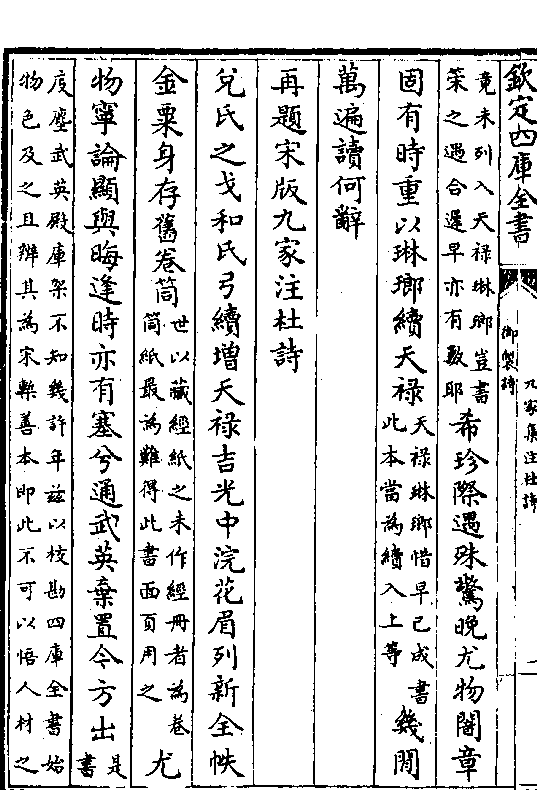 欽定四庫全書
御製詩
九家集注杜詩
一
竟未列入天禄琳瑯豈書
策之遇合遲早亦有數耶
希珍際遇殊驚晚尤物闇章
固有時重以琳瑯續天禄
天禄琳瑯惜早已成書
此本當為續入上等
幾閒
萬遍讀何辭
再題宋版九家注杜詩
兊氏之戈和氏弓續增天禄吉光中浣花眉列新全帙
金粟身存舊卷筒
世以藏經紙之未作經冊者為卷
筒紙最為難得此書面頁用之
尤
物寧論顯與晦逢時亦有塞兮通武英棄置今方出
是
書
庋塵武英殿庫架不知幾許年兹以校勘四庫全書始
物色及之且辨其為宋槧善本即此不可以悟人材之